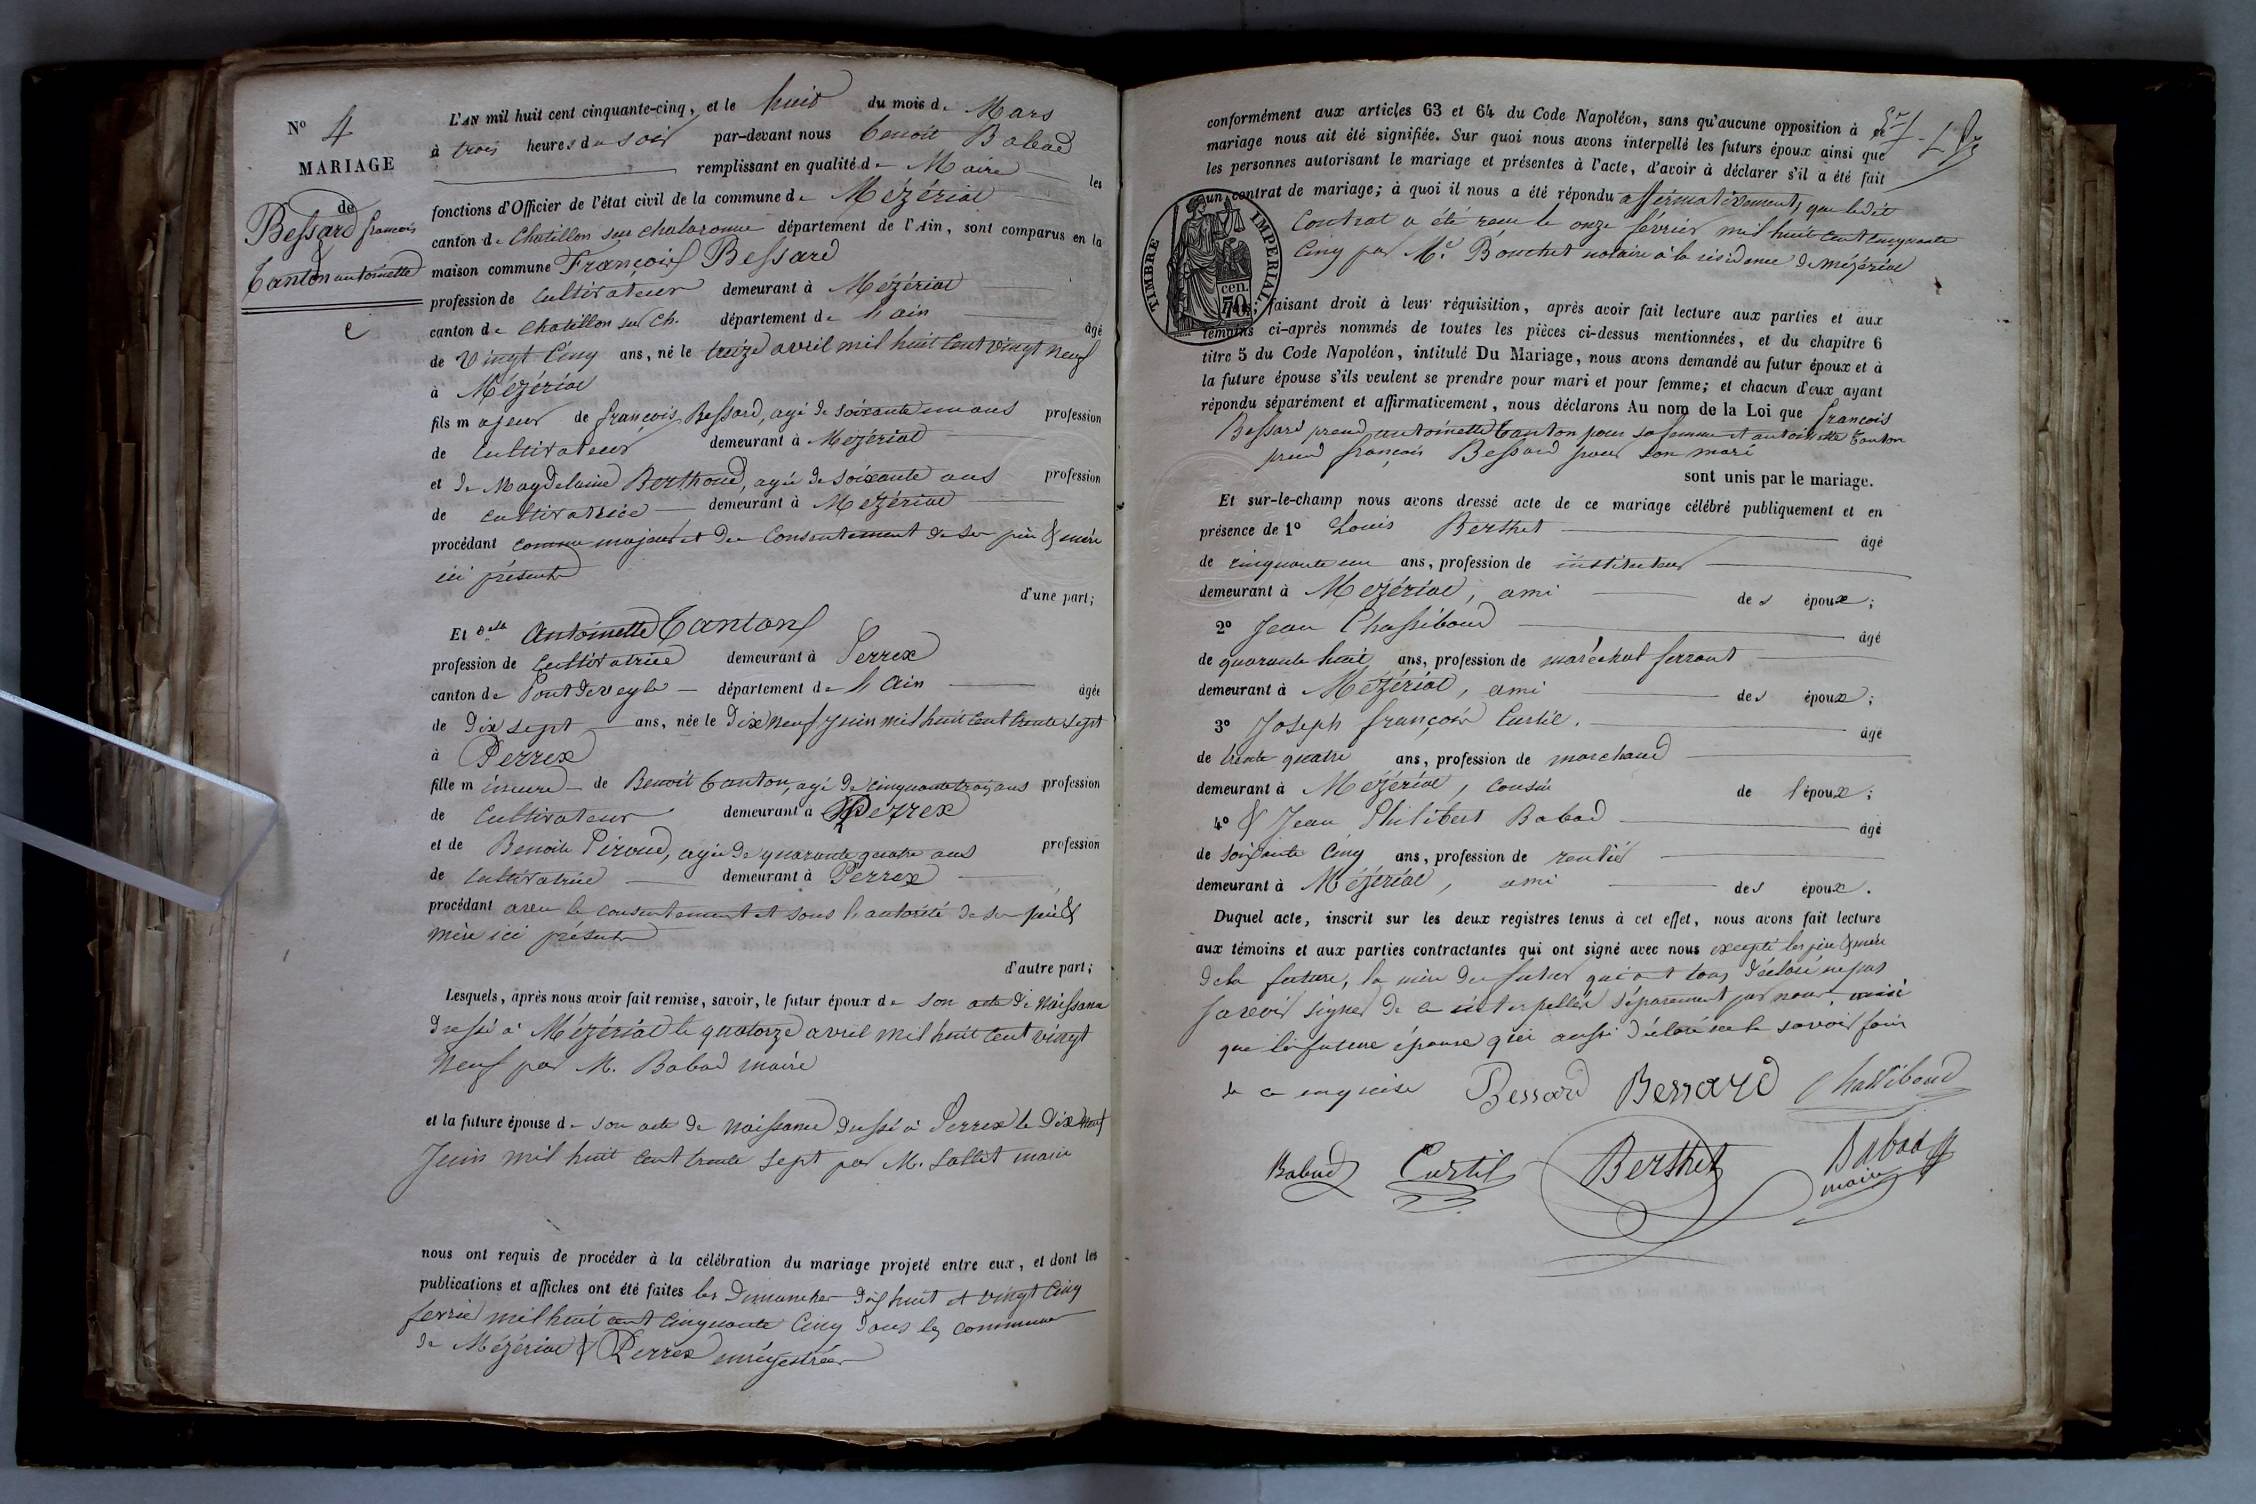 N° 4
MARIAGE
de
Bessard françois
&
Tanton antoinette
L'AN mil huit cent cinquante-cinq, et le huit du mois de Mars
à trois heures du soir par-devant nous Benoit Babad
remplissant en qualité de Maire les
fonctions d'Officier de l'état civil de la commune de Mézériat
canton de Chatillon sur chalaronne département de l'Ain, sont comparus en la
maison commune François Bessard
profession de Cultivateur demeurant à Mézériat
canton de Chatillon sur Ch. département de l'ain âgé
de Vingt Cinq ans, né le treize avril mil huit cent vingt neuf
à Mézériat
fils majeur de françois Bessard, agé de soixante un ans profession
de Cultivateur demeurant à Mézériat
et de Magdelaine Berthoud, agée de soixante ans profession
de cultivatrice demeurant à Mézériat
procédant comme majeur et du Consentement de ses père & mère
ici présents
d'une part;
Et dlle Antoinette Tanton
profession de Cultivatrice demeurant à Perrex
canton de Pont deveyle département de l'Ain âgée
de Dix sept ans, née le Dix neuf juin mil huit cent trente sept
à Perrex
fille mineure de Benoit Tanton, agé de cinquante trois ans profession
de Cultivateur demeurant à Perrex
et de Benoite Péroud, agée de quarante quatre ans profession
de Cultivatrice demeurant à Perrex
procédant avec le consentement et sous l'autorité de ses père &
mère ici présents
d'autre part;
Lesquels, après nous avoir fait remise, savoir, le futur époux de son acte de Naissance
dressé à Mézériat le quatorze avril mil huit cent vingt
neuf par M. Babad maire
et la future épouse de son acte de Naissance dressé à Perrex le dix neuf
Juin mil huit cent trente sept par M. Sallet maire
nous ont requis de procéder à la célébration du mariage projeté entre eux, et dont les
publications et affiches ont été faites les Dimanches dix huit et vingt Cinq
fevrier mil huit cent Cinquante Cinq dans les communes
de Mézériat & Perrex enrégistrées
conformément aux articles 63 et 64 du Code Napoléon, sans qu'aucune opposition à ce
mariage nous ait été signifiée. Sur quoi nous avons interpellé les futurs époux ainsi que
les personnes autorisant le mariage et présentes à l'acte, d'avoir à déclarer s'il a été fait
un contrat de mariage; à quoi il nous a été répondu affirmativement, que ledit
Contrat a été recu le onze février mil huit cent cinquante
Cinq par Me Bouchet notaire à la résidence de Mézériat
TIMBRE IMPERIAL
cen. 70
faisant droit à leur réquisition, après avoir fait lecture aux parties et aux
témoins ci-après nommés de toutes les pièces ci-dessus mentionnées, et du chapitre 6
titre 5 du Code Napoléon, intitulé Du Mariage, nous avons demandé au futur époux et à
la future épouse s'ils veulent se prendre pour mari et pour femme; et chacun d'eux ayant
répondu séparément et affirmativement, nous déclarons Au nom de la Loi que françois
Bessard prend antoinette Tanton pour sa femme et antoinette Tanton
prend françois Bessard pour son mari
sont unis par le mariage.
Et sur-le-champ nous avons dressé acte de ce mariage célébré publiquement et en
présence de 1° Louis Berthet âgé
de cinquante un ans, profession de instituteur
demeurant à Mézériat, ami des époux;
2° Jean Chassiboud âgé
de quarante huit ans, profession de maréchal ferrant
demeurant à Mézériat, ami des époux;
3° Joseph françois Curtil. âgé
de trente quatre ans, profession de marchand
demeurant à Mézériat, cousin de l'époux;
4° & Jean Philibert Babad âgé
de soixante Cinq ans, profession de rentier
demeurant à Mézériat, ami des époux.
Duquel acte, inscrit sur les deux registres tenus à cet effet, nous avons fait lecture
aux témoins et aux parties contractantes qui ont signé avec nous excepté les père & mère
de la future, la mère du futur qui ont tous déclaré ne pas
savoir signer de ce interpellés séparement par nous, ainsi
que la future épouse qui aussi déclaré ne le savoir faire
de ce enquise Bessard Bessard Chassiboud
Babad Curtil Berthet Babad
maire